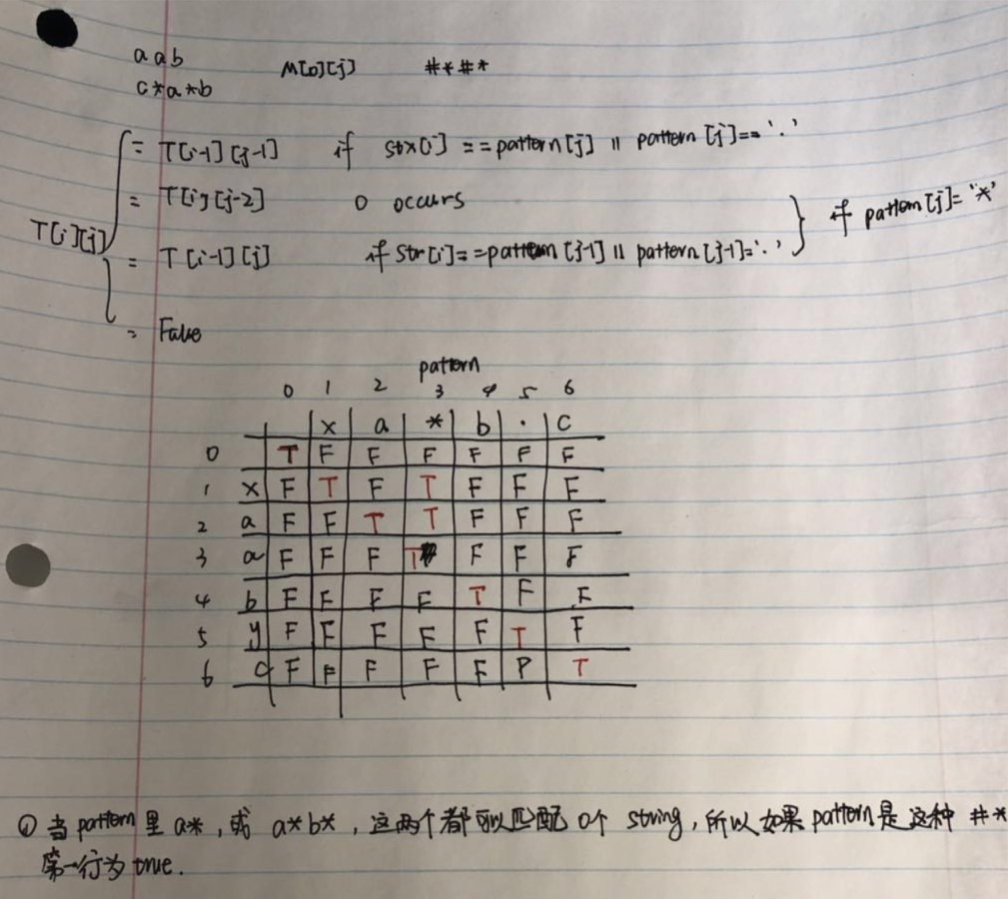 aab M[0][j] #*#*
c*a*b
= T[i-1][j-1] if str[i] == pattern[j] || pattern[j]=='.'
= T[i][j-2] 0 occurs
T[i][j] if pattern[j]='*'
= T[i-1][j] if str[i]==pattern[j-1] || pattern[j-1]='.'
= False
pattern
0 1 2 3 4 5 6
x a * b . c
0 T F F F F F F
1 x F T F T F F F
2 a F F T T F F F
3 a F F F T F F F
4 b F F F F T F F
5 y F F F F F T F
6 c F F F F F F T
① 当 pattern 里 a*, 或 a*b*, 这两个都可以匹配 0个 string, 所以如果 pattern 是这种 #*
第一行为 true.